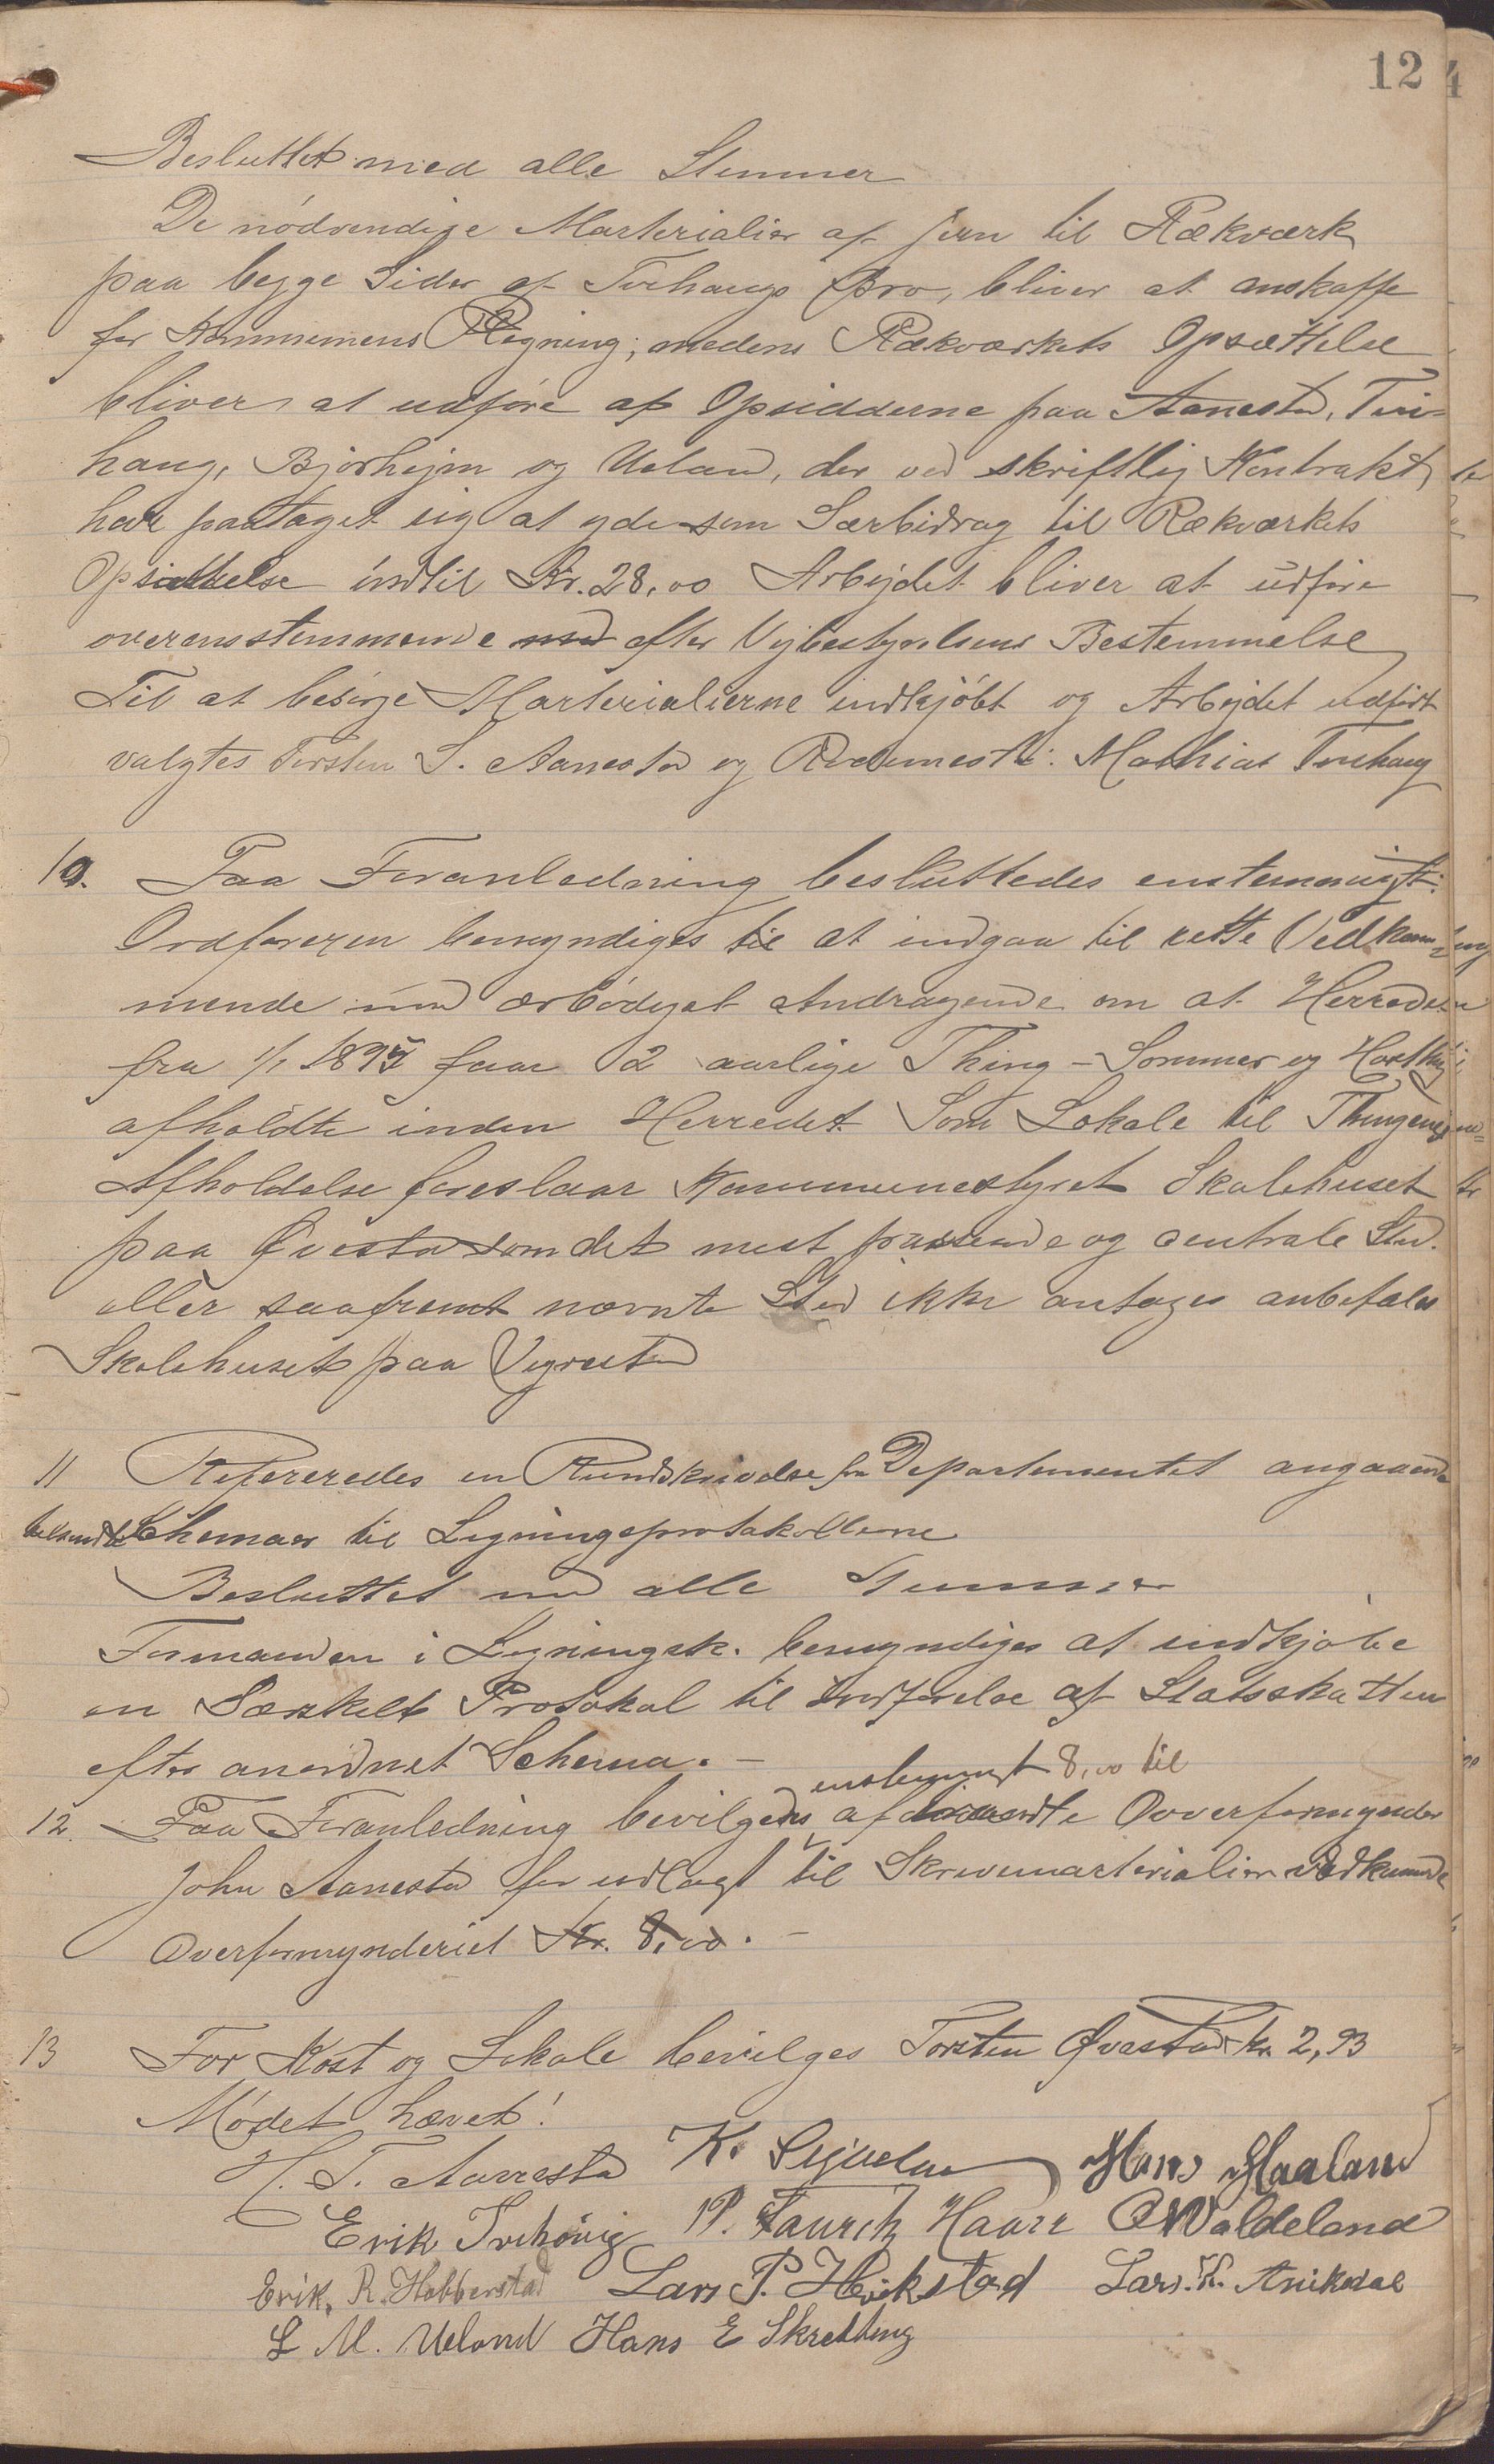 12
Besluttet med alle Stemmer
De nödvendige Marterialier af jern til Rækværk
paa begge Sider af Tuehaugs Bro, bliver at anskaffe
for Kommunens Regning; medens Rækværkets Opsættelse
bliver at udføre af Opsidderne paa Aanestad, Tui-
haug, Bjorhejm og Ueland, der ved skriftlig Kontrakt
har paataget sig at yde som Særbidrag til Rækværkets
Opsættelse indtil Kr. 28,00 Arbejdet bliver at udføre
overensstemmende med efter Vejbestyrelsens Bestemmelse
Til at besörge Marterialierne indkjöbt og Arbejdet udført
valgtes Torsten S. Aanestad og Rodemester: Mathias Tuehaug
10. Paa Foranledning besluttedes enstemmigt:
Ordføreren bemyndiges til at indgaa til rette Vedkom-
mende med ærbödigst Andragende om at Herredet
fra 1/1 1895 faar 2 aarlige Thing - Sommer og Høstthing
afholdte inden Herredet Som Lokale til Thingenes
Afholdelse foreslaar Kommunestyret Skolehuset
paa Qvestad som det mest passende og centrale Sted.
eller saafremt nævnte Sted ikke antages anbefales
Skolehuset paa Vigrestad
11 Refereredes en Rundskrivelse fra Departementet angaaende
tilsendte Schemaer til Ligningsprotokollerne
Besluttet med alle Stemmer
Formanden i Ligningsk. bemyndiges at indkjöbe
en Særskilt Protokol til Indførelse af Statsskatten
efter anordnet Schema. -
enstemmigt 8,00 til
12. Paa Foranledning bevilgedes afdöde Overformynder
John Aanestad for udlagt til Skrivemarterialier vedkommende
Overformynderiet Kr. 8,00. -
13 For Kost og Lokale bevilges Torsten Qvestad kr. 2,93
Mödet hævet!
H. T. Aarrestad K. Hans Haaland
Erik P. Taurik Haarr O Waldeland
Erik. R. Hobberstad Lars P. Herikstad Lars. K. Anikdal
L M. Ueland Hans E Skretting